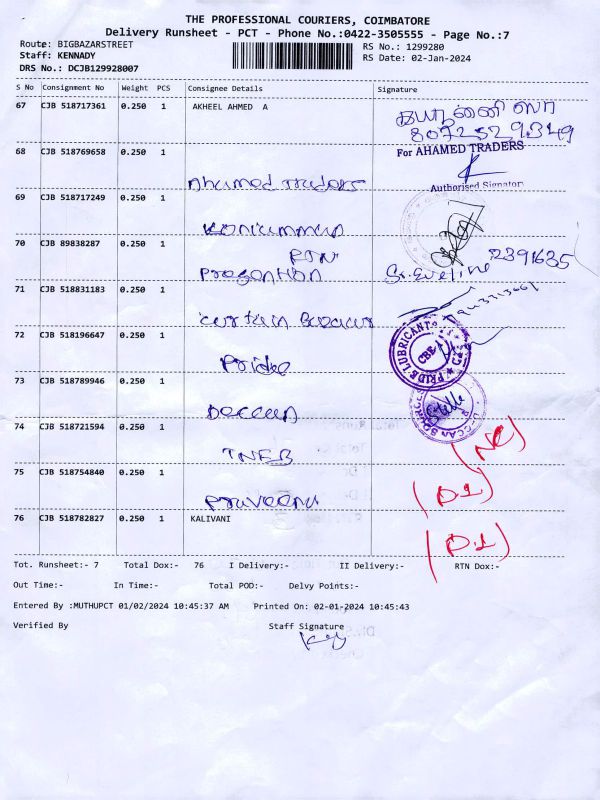 THE PROFESSIONAL COURIERS, COIMBATORE
Delivery Runsheet - PCT - Phone No.:0422-3505555 - Page No.:7
Route: BIGBAZARSTREET
RS No.: 1299280
Staff: KENNADY
RS Date: 02-Jan-2024
DRS No.: DCJB129928007
S No Consignment No Weight PCS Consignee Details Signature
67 CJB 518717361 0.250 1 AKHEEL AHMED A
8072529349
68 CJB 518769658 0.250 1 For AHAMED TRADERS
Ahamed Traders Authorised Signatory
69 CJB 518717249 0.250 1
70 CJB 89838287 0.250 1
RTN
Sr. Eveline 2391635
71 CJB 518831183 0.250 1
curtain
72 CJB 518196647 0.250 1 PRIDE LUBRICANTS CBE-1
Pride
73 CJB 518789946 0.250 1
Deccan
74 CJB 518721594 0.250 1
TNEB (NC)
75 CJB 518754840 0.250 1
Praveena (D1)
76 CJB 518782827 0.250 1 KALIVANI
(D1)
Tot. Runsheet:- 7 Total Dox:- 76 I Delivery:- II Delivery:- RTN Dox:-
Out Time:- In Time:- Total POD:- Delvy Points:-
Entered By :MUTHUPCT 01/02/2024 10:45:37 AM Printed On: 02-01-2024 10:45:43
Verified By Staff Signature